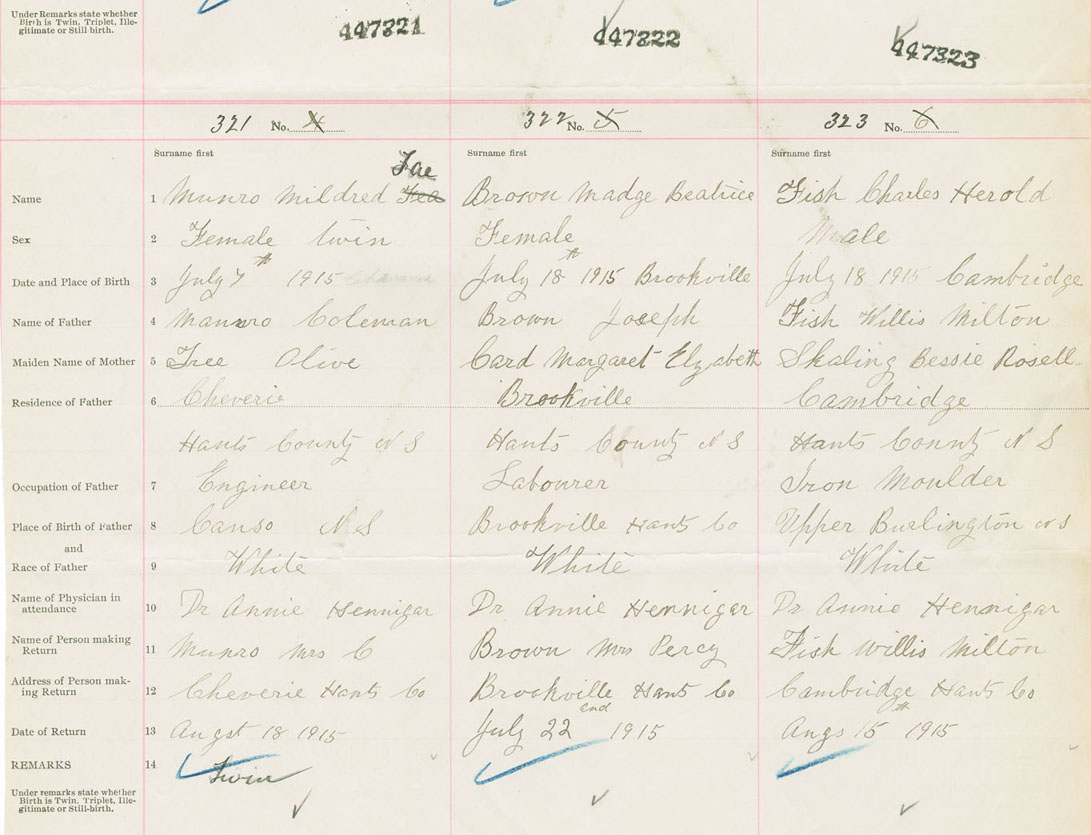 Under Remarks state whether
Birth is Twin, Triplet, Ille-
gitimate or Still birth.
447321 447322 447323
321 No. 4 322 No. 5 323 No. 6
Surname first Surname first Surname first
Fae
Name 1 Munro Mildred Fea Brown Madge Beatrice Fish Charles Herold
Sex 2 Female twin Female Male
Date and Place of Birth 3 July 7th 1915 July 18th 1915 Brookville July 18 1915 Cambridge
Name of Father 4 Munro Coleman Brown Joseph Fish Willis Milton
Maiden Name of Mother 5 Tree Olive Card Margaret Elyzabeth Skaling Bessie Rosell
Residence of Father 6 Cheverie Brookville Cambridge
Hants County N S Hants County N S Hants County N S
Occupation of Father 7 Engineer Labourer Iron Moulder
Place of Birth of Father 8 Canso N.S Brookville Hants Co Upper Burlington N S
and
Race of Father 9 White White White
Name of Physician in
attendance 10 Dr Annie Hennigar Dr Annie Hennigar Dr Annie Hennigar
Name of Person making
Return 11 Munro Mrs C Brown Mrs Percy Fish Willis Milton
Address of Person mak-
ing Return 12 Cheverie Hants Co Brookville Hants Co Cambridge Hants Co
Date of Return 13 Augst 18 1915 July 22end 1915 Augs 15th 1915
REMARKS 14 Twin
Under remarks state whether
Birth is Twin, Triplet, Ille-
gitimate or Still-birth.